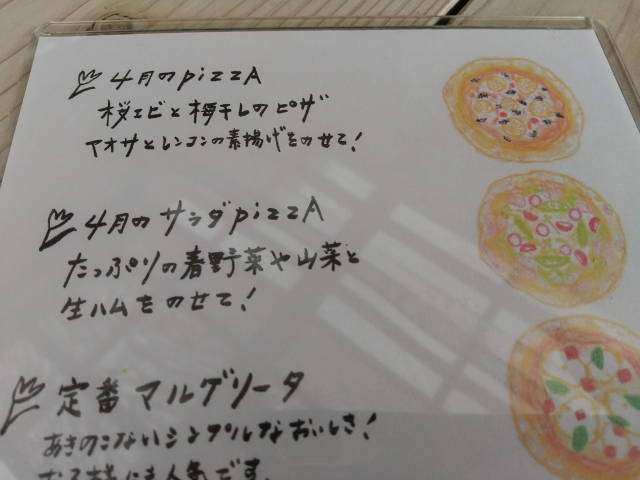 4月のpizzA
桜エビと梅干しのピザ
アオサとレンコンの素揚げをのせて!
4月のサラダpizzA
たっぷりの春野菜や山菜と
生ハムをのせて!
定番マルゲリータ
あきのこないシンプルなおいしさ!
お子様にも人気です。